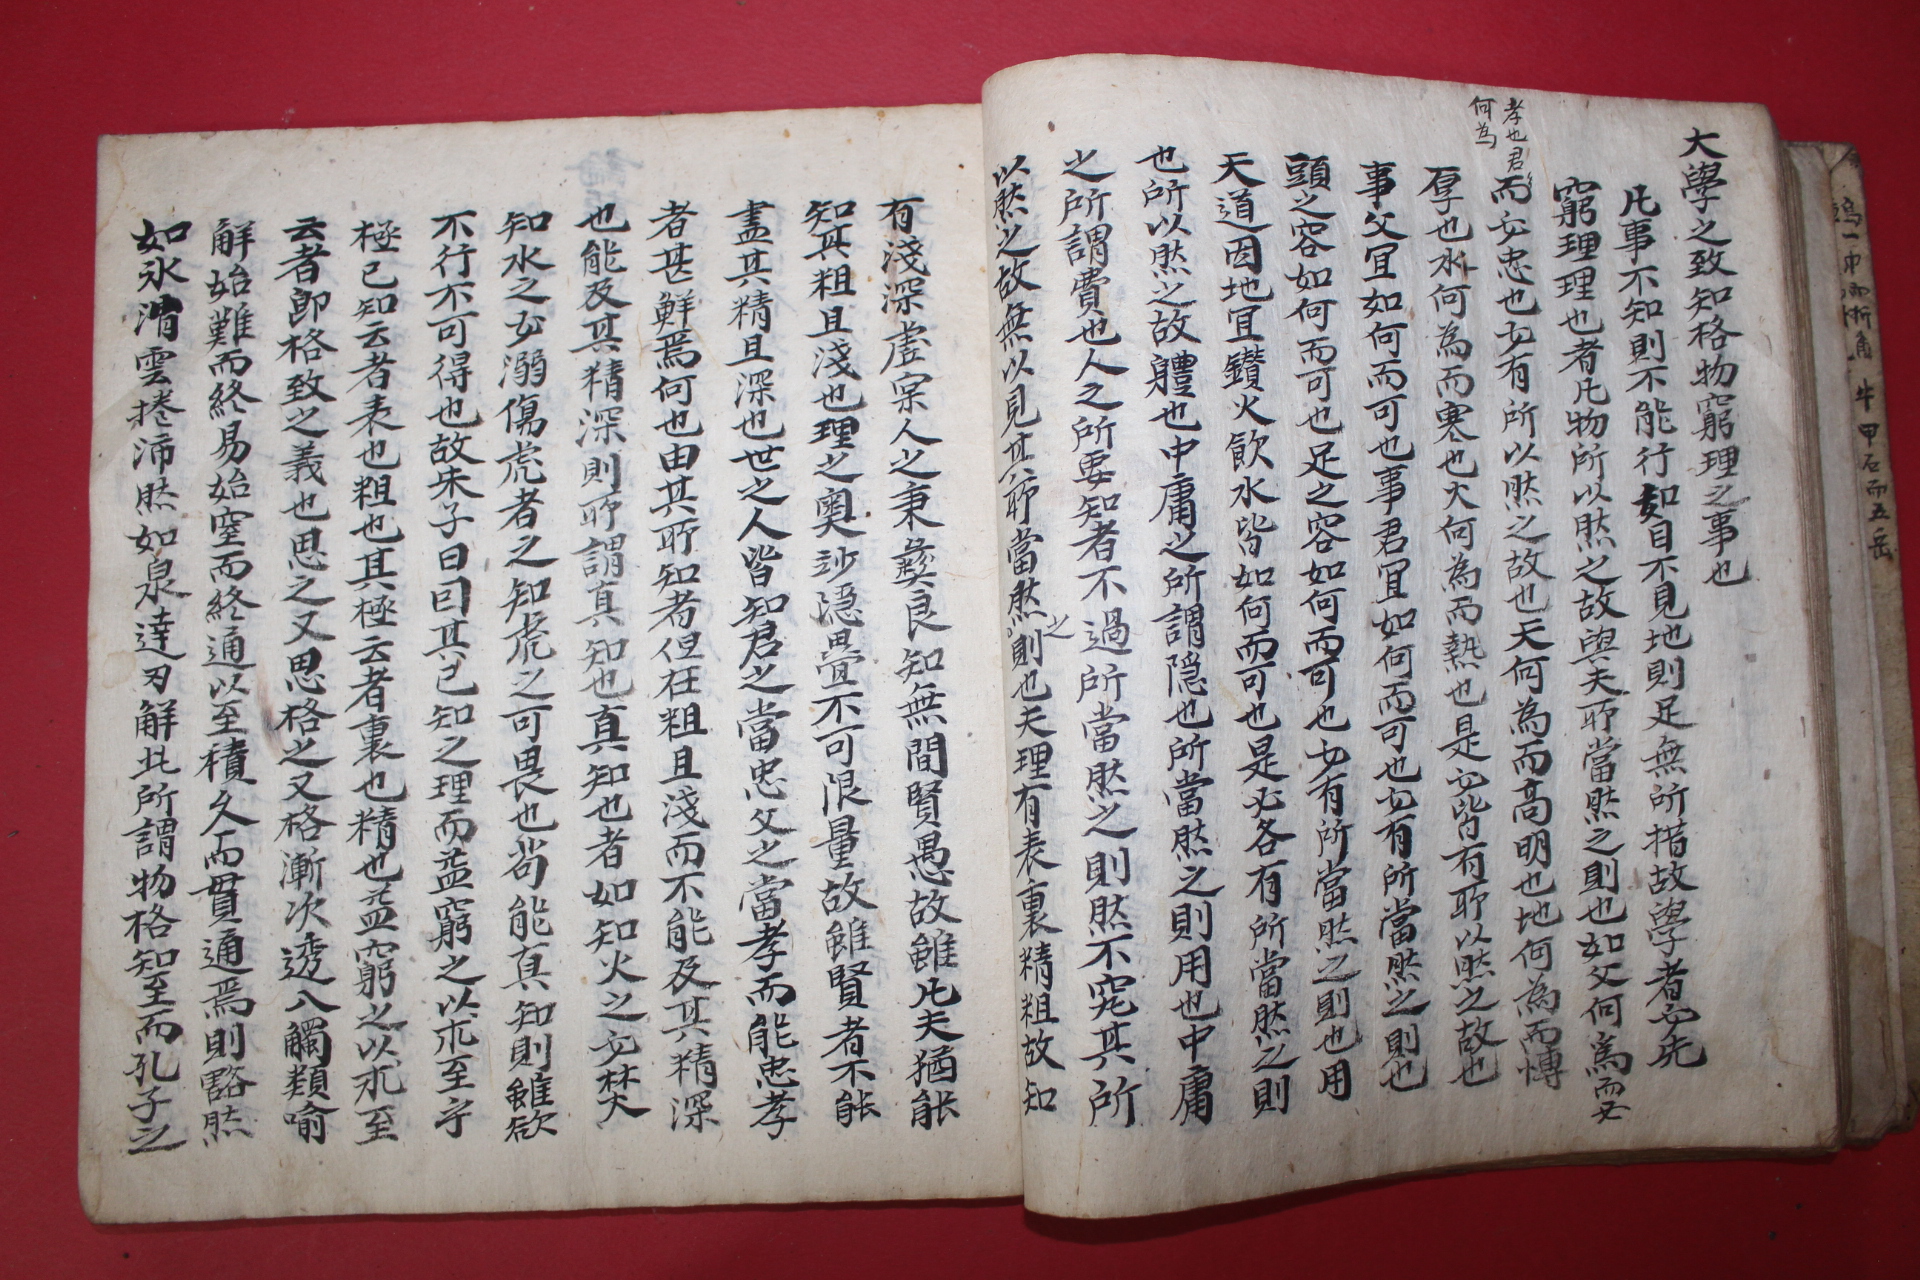 大學之致知格物窮理之事也
凡事不知則不能行如目不見地則足無所措故學者必先
窮理理也者凡物所以然之故與夫所當然之則也如父何為而必
孝也君
何為
而必忠也必有所以然之故也天何為而高明也地何為而博
厚也水何為而寒也火何為而熱也是必皆有所以然之故也
事父宜如何而可也事君宜如何而可也必有所當然之則也
頭之容如何而可也足之容如何而可也必有所當然之則也用
天道因地宜鑽火飲水皆如何而可也是必各有所當然之則
也所以然之故軆也中庸之所謂隠也所當然之則用也中庸
之所謂費也人之所要知者不過所當然之則然不究其所
以然之故無以見其所當然之則也夫理有表裏精粗故知
有淺深虛宲人之秉彛良知無間賢愚故雖凡夫猶能
知其粗且淺也理之奧沙隠疊不可限量故雖賢者不能
盡其精且深也世之人皆知君之當忠父之當孝而能忠孝
者甚鮮焉何也由其所知者但在粗且淺而不能及其精深
也能及其精深則所謂真知也真知也者如知火之必焚
知水之必溺傷虎者之知虎之可畏也尚能真知則雖欲
不行不可得也故朱子曰因其已知之理而益窮之以求至乎
極已知云者表也粗也其極云者裏也精也益窮之以求至
云者即格致之義也思之又思格之又格漸次透入觸類喻
解始難而終易始窒而終通以至積久而貫通焉則豁然
如氷消雲捲沛然如泉達刃解此所謂物格知至而孔子之
牛 甲石而五岳